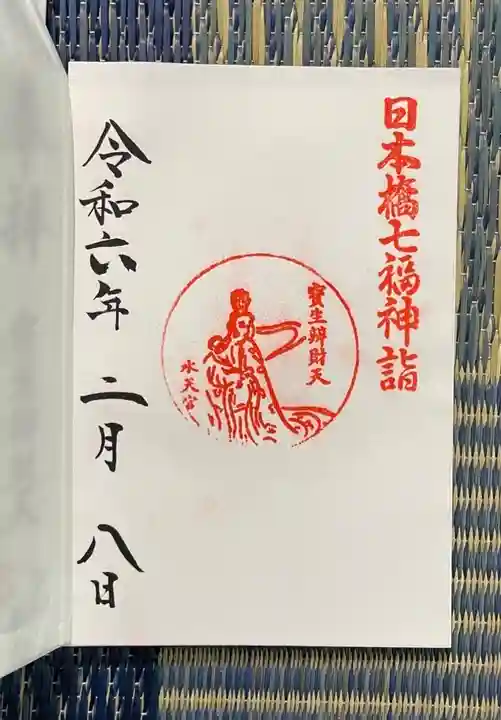 日本橋七福神詣
寳生辨財天
水天宮
令和六年 二月 八日